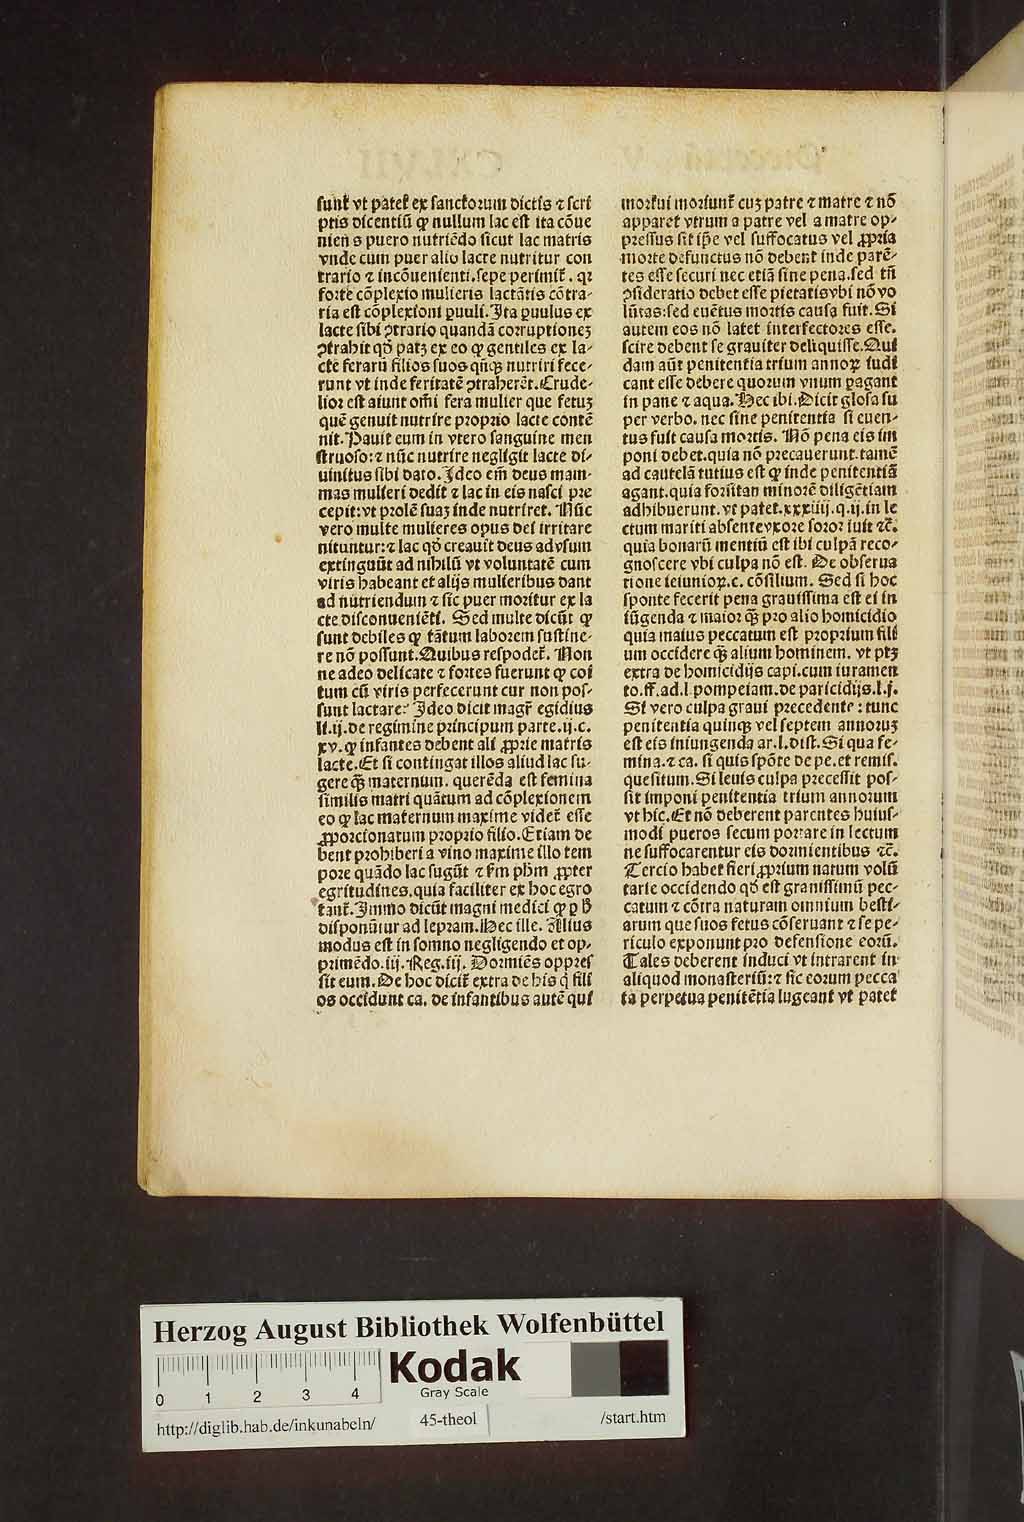 sunt vt patet ex sanctorum dictis ⁊ scri
ptis dicentiū ꝙ nullum lac est ita cōue
niens puero nutriēdo sicut lac matris
vnde cum puer alio lacte nutritur con
trario ⁊ incōuenienti. sepe perimit̄. qꝛ
forte cōplexio mulieris lactātis cōtra-
ria est cōplexioni ꝑuuli. Ita ꝑuulus ex
lacte sibi ꝯtrario quandā corruptionez
ꝯtrahit qd̄ patꝫ ex eo ꝙ gentiles ex la-
cte ferarū filios suos qn̄qꝫ nutriri fece-
runt vt inde feritatē ꝯtraherēt. Crude-
lior est aiunt om̄i fera mulier que fetuꝫ
quē genuit nutrire proprio lacte contē
nit. Pauit eum in vtero sanguine men
struoso: ⁊ nūc nutrire negligit lacte di-
uinitus sibi dato. Ideo em̄ deus mam-
mas mulieri dedit ⁊ lac in eis nasci pre
cepit: vt prolē suaꝫ inde nutriret. Nūc
vero multe mulieres opus dei irritare
nituntur: ⁊ lac qd̄ creauit deus adusum
extinguūt ad nihilū vt voluntatē cum
viris habeant et alijs mulieribus dant
ad nutriendum ⁊ sic puer moritur ex la
cte disconueniēti. Sed multe dicūt ꝙ
sunt debiles ꝙ tātum laborem sustine-
re nō possunt. Quibus respōdet̄. Non
ne adeo delicate ⁊ fortes fuerunt ꝙ coi
tum cū viris perfecerunt cur non pos-
sunt lactare? Ideo dicit magr̄ egidius
li. ij. de regimine principum parte. ij. c.
xv. ꝙ infantes debent ali ꝓprie matris
lacte. Et si contingat illos aliud lac su-
gere qꝫ̄ maternum. querēda est femina
similis matri quātum ad cōplexionem
eo ꝙ lac maternum maxime videt̄ esse
ꝓporcionatum proprio filio. Etiam de
bent prohiberi a vino maxime illo tem
pore quādo lac sugūt ⁊ s̄m ph̄m ꝓpter
egritudines. quia faciliter ex hoc egro
tant̄. Immo dicūt magni medici ꝙ ꝑ ꝟ
disponūtur ad lepram. Hec ille. Alius
modus est in somno negligendo et op-
primēdo. iij. Reg. iij. Dormiēs oppres
sit eum. De hoc dicit̄ extra de his q̄ fili
os occidunt ca. de infantibus autē qui
mortui moriunt̄ cuꝫ patre ⁊ matre ⁊ nō
apparet vtrum a patre vel a matre op-
pressus sit ip̄e vel suffocatus vel ꝓpria
morte defunctus nō debent inde parē-
tes esse securi nec etiā sine pena. sed tn̄
ꝯsideratio debet esse pietatis vbi nō vo
lūtas: sed euētus mortis causa fuit. Si
autem eos nō latet interfectores esse.
scire debent se grauiter deliquisse. Qui
dam aūt penitentia trium annoꝝ iudi
cant esse debere quorum vnum ꝑagant
in pane ⁊ aqua. Hec ibi. Dicit glosa su
per verbo. nec sine penitentia si euen-
tus fuit causa mortis. Nō pena eis im
poni debet. quia nō precauerunt. tamē
ad cautelā tutius est ꝙ inde penitentiā
agant. quia forsitan minorē diligētiam
adhibuerunt. vt patet. xxxiiij. q. ij. in le
ctum mariti absente vxore soror iuit ⁊c̄.
quia bonarū mentiū est ibi culpā reco-
gnoscere vbi culpa nō est. De obserua
tione ieiunioꝝ. c. cōsilium. Sed si hoc
sponte fecerit pena grauissima est ei in
iūgenda ⁊ maior qꝫ̄ pro alio homicidio
quia maius peccatum est proprium fili
um occidere qꝫ̄ alium hominem. vt ptꝫ
extra de homicidijs capi. cum iuramen
to. ff. ad. l. pompeiam. de paricidijs. l. j.
Si vero culpa graui precedente: tunc
penitentia quinqꝫ vel septem annoruꝫ
est eis iniungenda ar. l. dist. Si qua fe-
mina. ⁊ ca. si quis spōte de pe. et remis.
quesitum. Si leuis culpa precessit pos-
sit imponi penitentia trium annorum
vt hic. Et nō deberent parentes huius-
modi pueros secum portare in lectum
ne suffocarentur eis dormientibus ⁊c̄.
Tercio habet fieri ꝓprium natum volū
tarie occidendo qd̄ est grauissimū pec-
catum ⁊ cōtra naturam omnium besti-
arum que suos fetus cōseruant ⁊ se pe-
riculo exponunt pro defensione eorū.
Tales deberent induci vt intrarent in
aliquod monasteriū: ⁊ sic eorum pecca
ta perpetua penitētia lugeant vt patet
Herzog August Bibliothek Wolfenbüttel
0 1 2 3 4
Kodak
Gray Scale
http://diglib.hab.de/inkunabeln/ 45-theol /start.htm